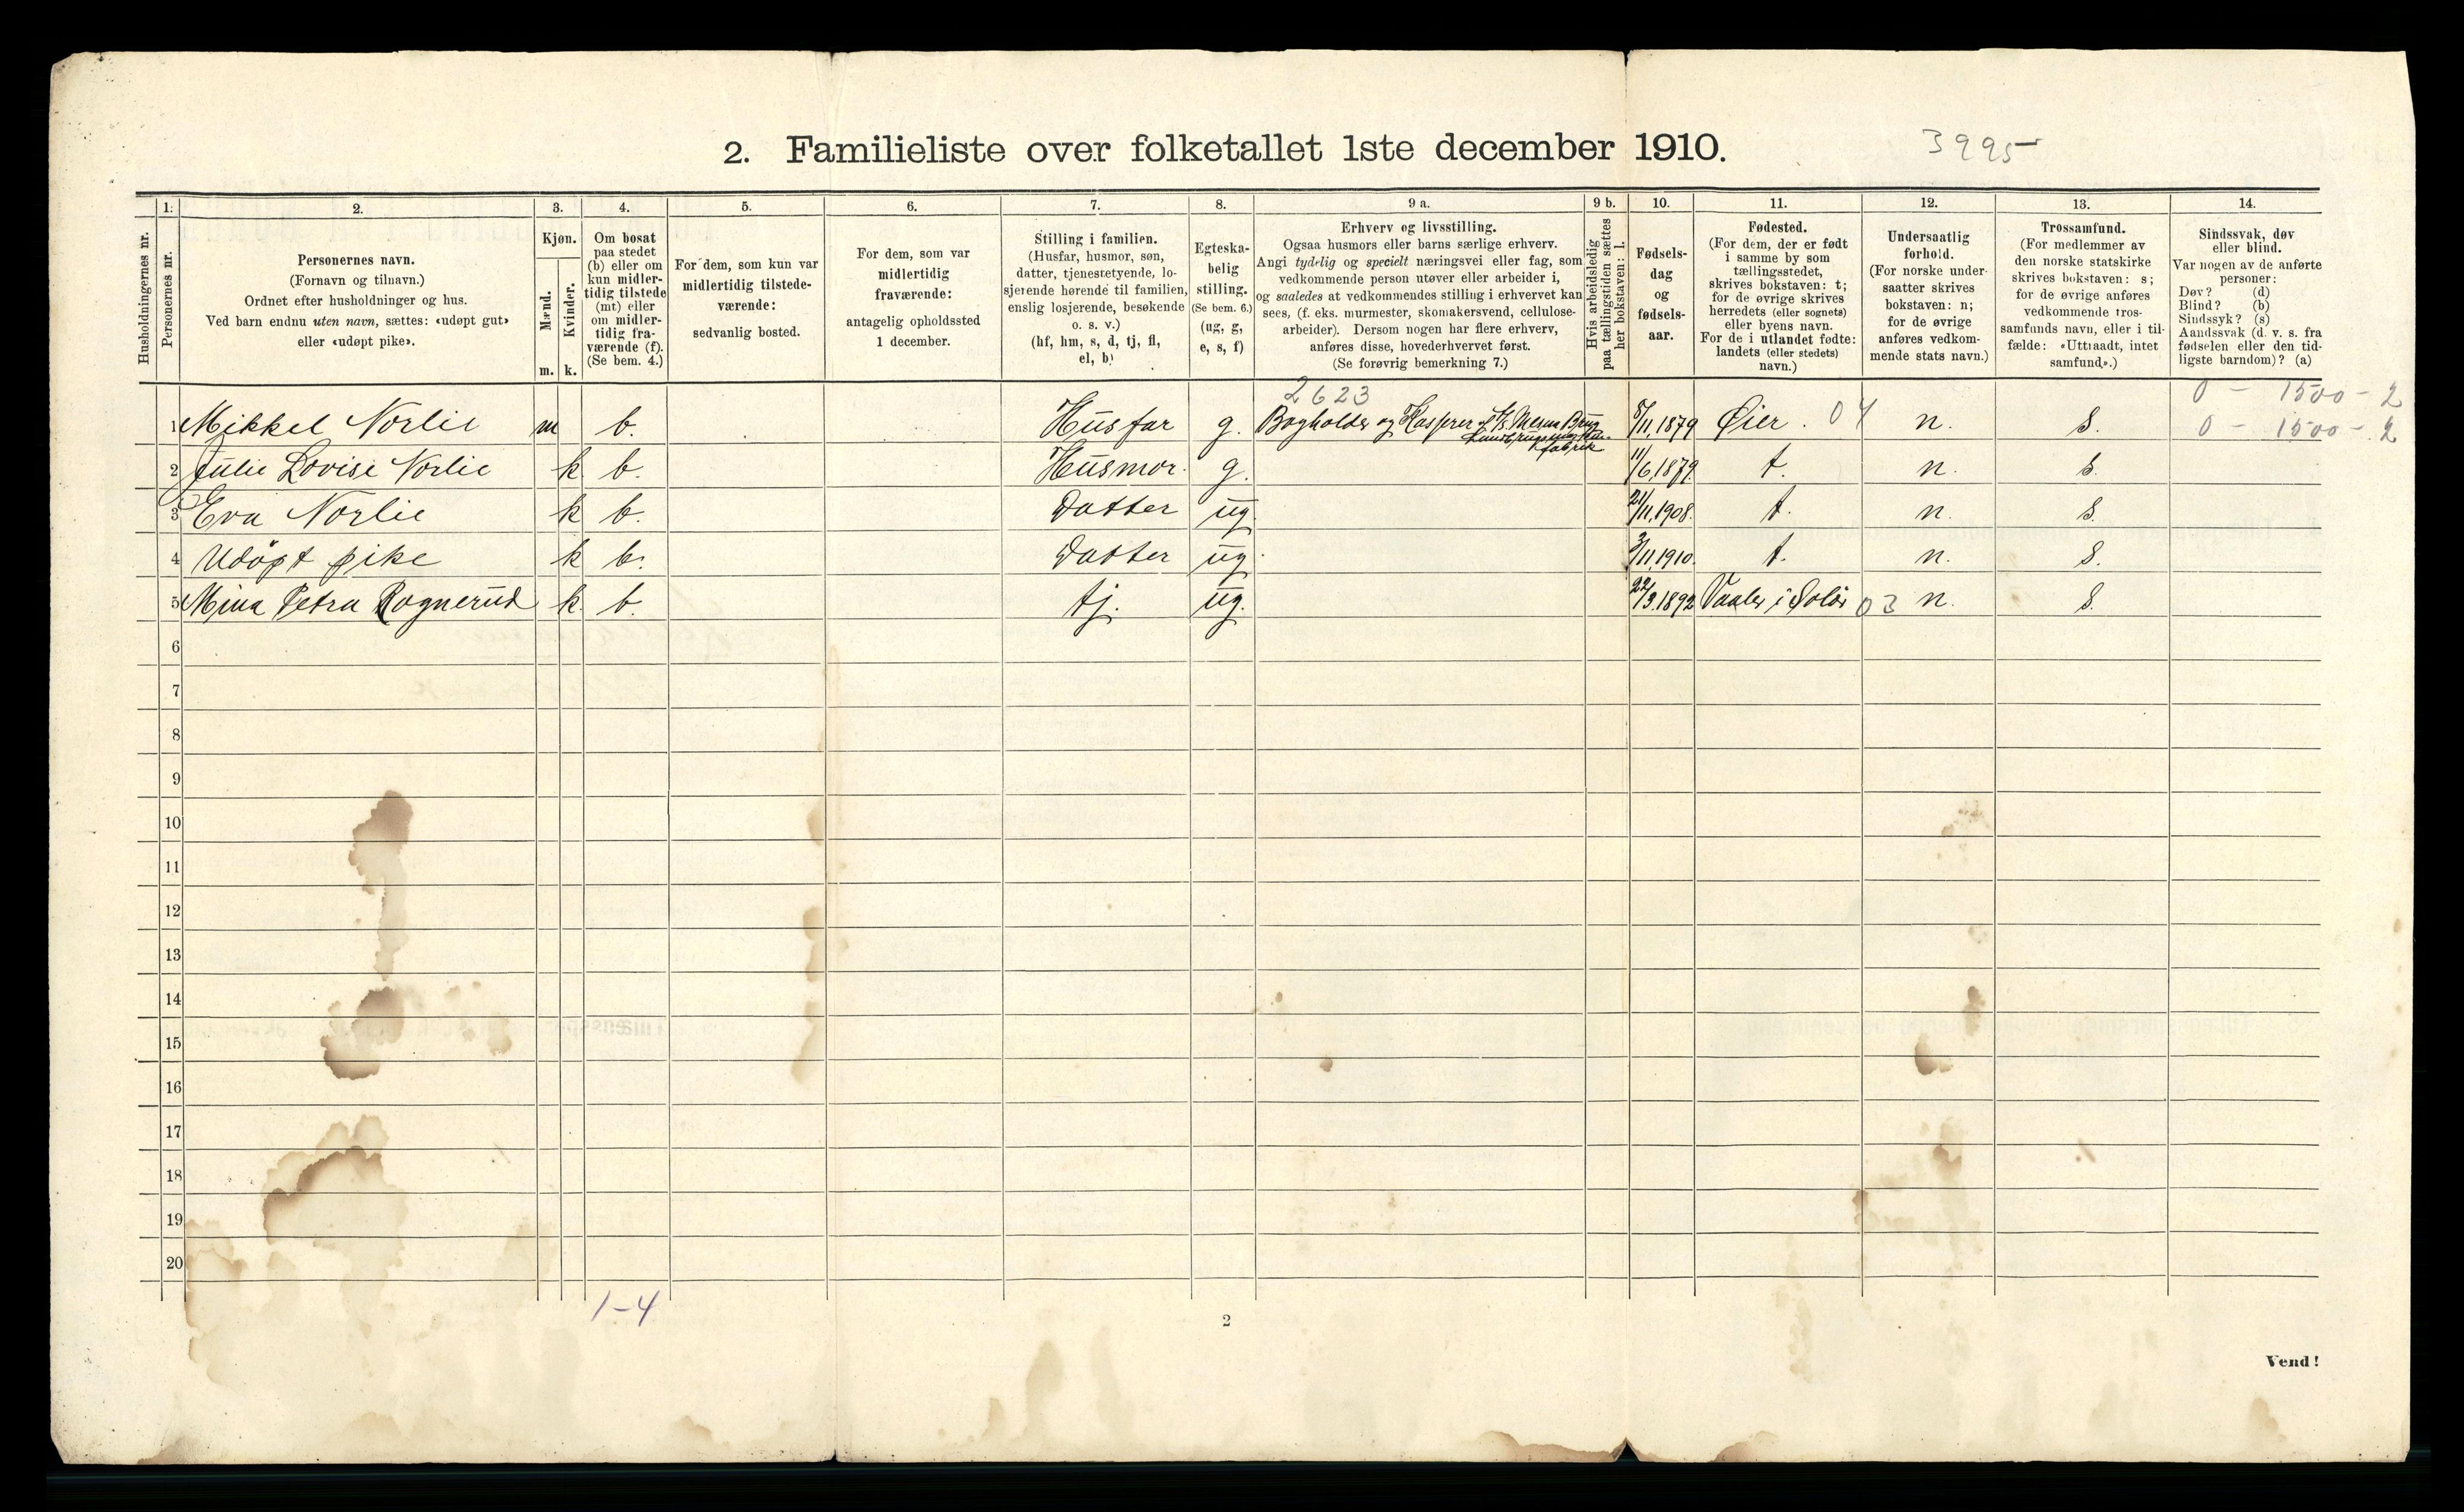 2. Familieliste over folketallet 1ste december 1910.
3995
1. 2. 3. 4. 5. 6. 7. 8. 9 a. 9 b. 10. 11. 12. 13. 14.
Husholdningernes nr.
Personernes nr.
Personernes navn.
(Fornavn og tilnavn.)
Ordnet efter husholdninger og hus.
Ved barn endnu uten navn, sættes: «udøpt gut»
eller «udøpt pike».
Kjøn.
Mænd.
Kvinder.
m. k.
Om bosat
paa stedet
(b) eller om
kun midler-
tidig tilstede
(mt) eller
om midler-
tidig fra-
værende (f).
(Se bem. 4.)
For dem, som kun var
midlertidig tilstede-
værende:
sedvanlig bosted.
For dem, som var
midlertidig
fraværende:
antagelig opholdssted
1 december.
Stilling i familien.
(Husfar, husmor, søn,
datter, tjenestetyende, lo-
sjerende hørende til familien,
enslig losjerende, besøkende
o. s. v.)
(hf, hm, s, d, tj, fl,
el, b)
Egteska-
belig
stilling.
(Se bem. 6.)
(ug, g,
e, s, f)
Erhverv og livsstilling.
Ogsaa husmors eller barns særlige erhverv.
Angi tydelig og specielt næringsvei eller fag, som
vedkommende person utøver eller arbeider i,
og saaledes at vedkommendes stilling i erhvervet kan
sees, (f. eks. murmester, skomakersvend, cellulose-
arbeider). Dersom nogen har flere erhverv,
anføres disse, hovederhvervet først.
(Se forøvrig bemerkning 7.)
Hvis arbeidsledig
paa tællingstiden sættes
her bokstaven: l.
Fødsels-
dag
og
fødsels-
aar.
Fødested.
(For dem, der er født
i samme by som
tællingsstedet,
skrives bokstaven: t;
for de øvrige skrives
herredets (eller sognets)
eller byens navn.
For de i utlandet fødte:
landets (eller stedets)
navn.)
Undersaatlig
forhold.
(For norske under-
saatter skrives
bokstaven: n;
for de øvrige
anføres vedkom-
mende stats navn.)
Trossamfund.
(For medlemmer av
den norske statskirke
skrives bokstaven: s;
for de øvrige anføres
vedkommende tros-
samfunds navn, eller i til-
fælde: «Uttraadt, intet
samfund».)
Sindssvak, døv
eller blind.
Var nogen av de anførte
personer:
Døv? (d)
Blind? (b)
Sindssyk? (s)
Aandssvak (d. v. s. fra
fødselen eller den tid-
ligste barndom)? (a)
2623
0 - 1500 - 2
1 Mikkel Norlie m b. Husfar g. Bogholder og Kasserer 8/11,1879 Øier. 04 n. s. 0 - 1500 - 2
fabrik
2 Julie Lovise Norlie k b. Husmor. g. 11/6,1879 t. n. s.
3 Eva Norlie k b. Datter ug. 21/11,1908. t. n. s.
4 Udöpt pike k b. Datter ug. 3/11,1910. t. n. s.
5 Mina Petra Rognerud k b. tj. ug. 22/3.1892 Vaaler i Solör 03 n. s.
6
7
8
9
10
11
12
13
14
15
16
17
18
19
20
1-4
2
Vend!